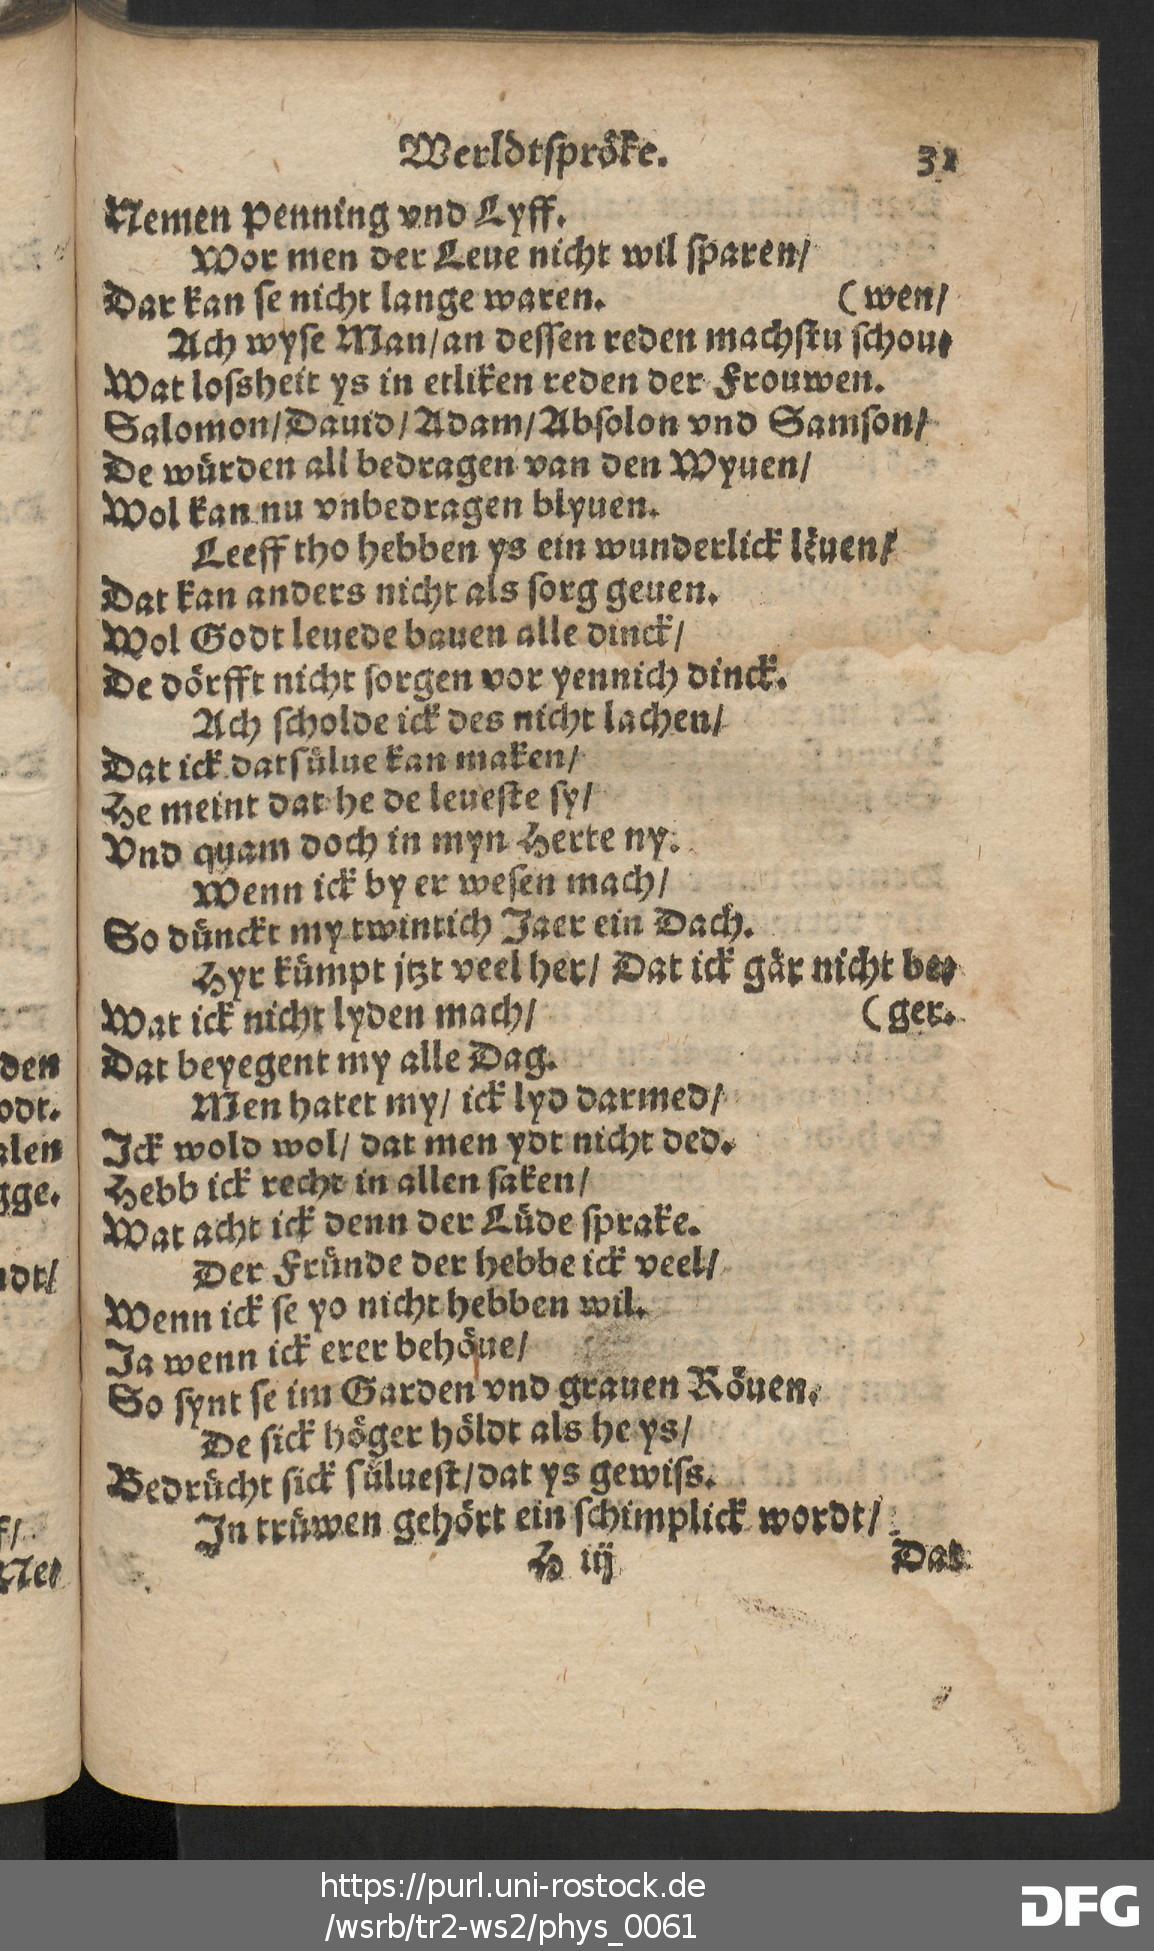 Werldtspröke. 31
Nemen Penning vnd Lyff.
Wor men der Leue nicht wil sparen/
Dar kan se nicht lange waren. (wen/
Ach wyse Man/an dessen reden machstu schou⸗
Wat lossheit ys in etliken reden der Frouwen.
Salomon/Dauid/Adam/Absolon vnd Samson/
De würden all bedragen van den Wyuen/
Wol kan nu vnbedragen blyuen.
Leeff tho hebben ys ein wunderlick lëuen/
Dat kan anders nicht als sorg geuen.
Wol Godt leuede bauen alle dinck/
De dörfft nicht sorgen vor yennich dinck.
Ach scholde ick des nicht lachen/
Dat ick datsülue kan maken/
He meint dat he de leueste sy/
Vnd quam doch in myn Herte ny.
Wenn ick by er wesen mach/
So dünckt my twintich Jaer ein Dach.
Hyr kümpt jtzt veel her/ Dat ick gär nicht be⸗
Wat ick nicht lyden mach/ (ger.
Dat beyegent my alle Dag.
Men hatet my/ ick lyd darmed/
Ick wold wol/ dat men ydt nicht ded.
Hebb ick recht in allen saken/
Wat acht ick denn der Lüde sprake.
Der Fründe der hebbe ick veel/
Wenn ick se yo nicht hebben wil.
Ja wenn ick erer behöue/
So synt se im Garden vnd grauen Röuen.
De sick höger höldt als he ys/
Bedrücht sick süluest/dat ys gewiss.
In trüwen gehört ein schimplick wordt/
H iij Dat
den
odt.
alen
gge.
ndt/
f/
Ne⸗
https://purl.uni-rostock.de
/wsrb/tr2-ws2/phys_0061
DFG